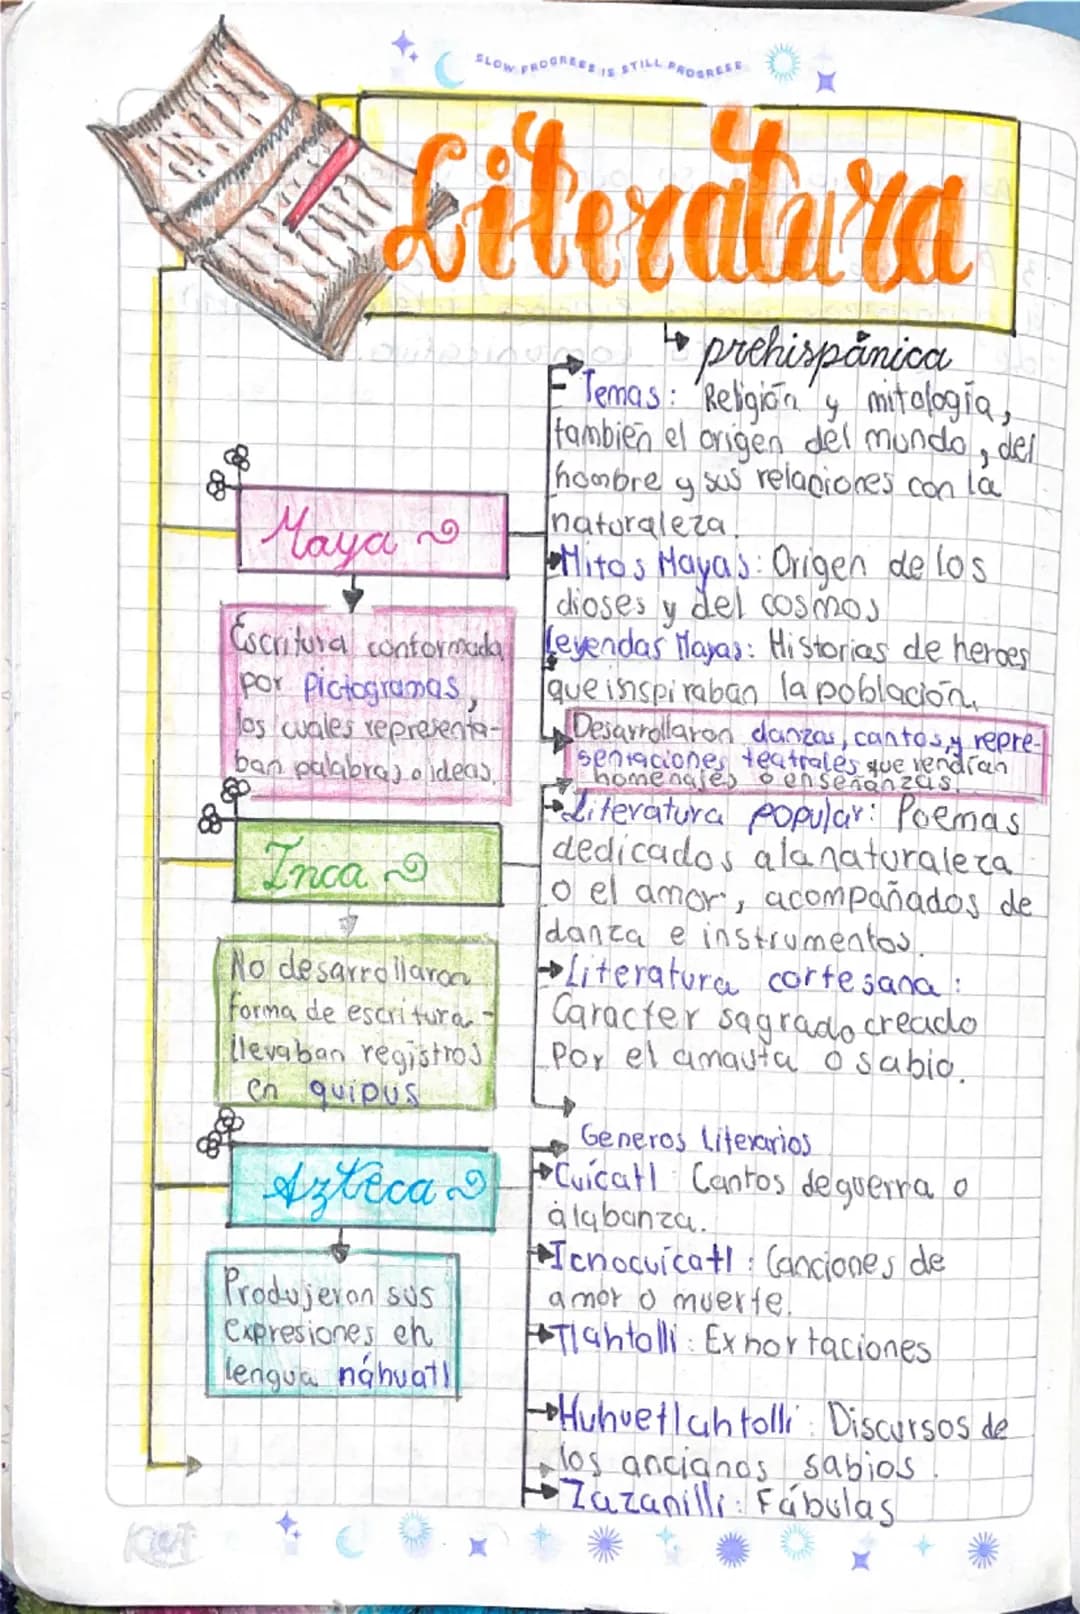 SLOW PROGRESS IS STILL PROGRESS
Literatura
prehispánica
Maya
Escritura conformada
por Pictogramas,
los cuales representa-
ban palabras o ideas.
- Temas: Religión y mitología,
también el origen del mundo, del
hombre y sus relaciones con la
naturaleza.
Mitos Mayas: Origen de los
dioses y del cosmos
leyendas Mayas: Historias de heroes
que inspiraban la población.
Desarrollaron danzas, cantos, y repre-
sentaciones teatrales que rendían
homenajes o enseñanzas.
Inca
No desarrollaron
forma de escritura -
llevaban registros
en quipus
Literatura popular: Poemas
dedicados a la naturaleza
o el amor, acompañados de
danza e instrumentos.
Literatura cortesana:
Caracter sagrado creado
por el amauta o sabio.
Azteca
Produjeron sus
expresiones en
lengua náhuatl
Generos Literarios
Cuícatl: Cantos de guerra o
alabanza.
Icnocuícatl: Canciones de
amor o muerte.
Tlahtolli: Exhortaciones
Huhuetlahtolli: Discursos de
los ancianos sabios.
Zazanilli: Fábulas